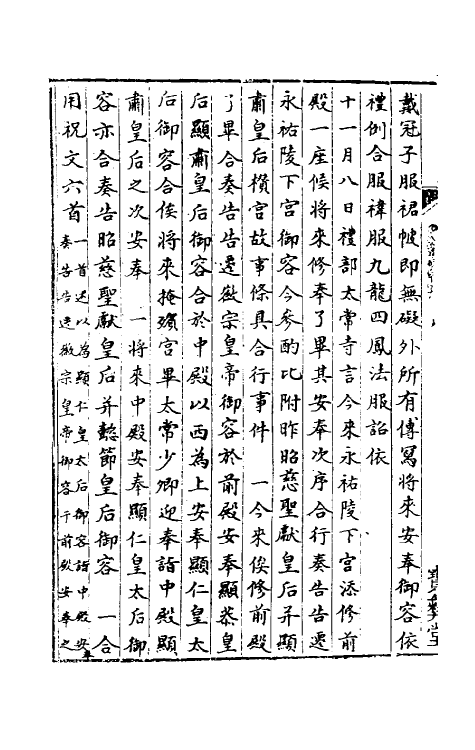 戴冠子服裙帔即無礙外所有傅寫將來安奉御容依
禮例合服褘服九龍四鳳法服詔依
十一月八日禮部太常寺言今來永祐陵下宮添修前
殿一座候將來修奉了畢其安奉次序合行奏告告遷
永祐陵下宮御容今參酌比附昨昭慈聖獻皇后并顯
肅皇后欑宮故事條具合行事件 一今來俟修前殿
了畢合奏告告遷徽宗皇帝御容於前殿安奉顯恭皇
后顯肅皇后御容合於中殿以西為上安奉顯仁皇太
后御容合俟將來掩殯宮畢太常少卿迎奉詣中殿顯
肅皇后之次安奉 一將來中殿安奉顯仁皇太后御
容亦合奏告昭慈聖獻皇后并懿節皇后御容 一合
用祝文六首一首還以為顯仁皇太后御容詣中殿安奉
奏告告遷徽宗皇帝御容于前殿安奉之